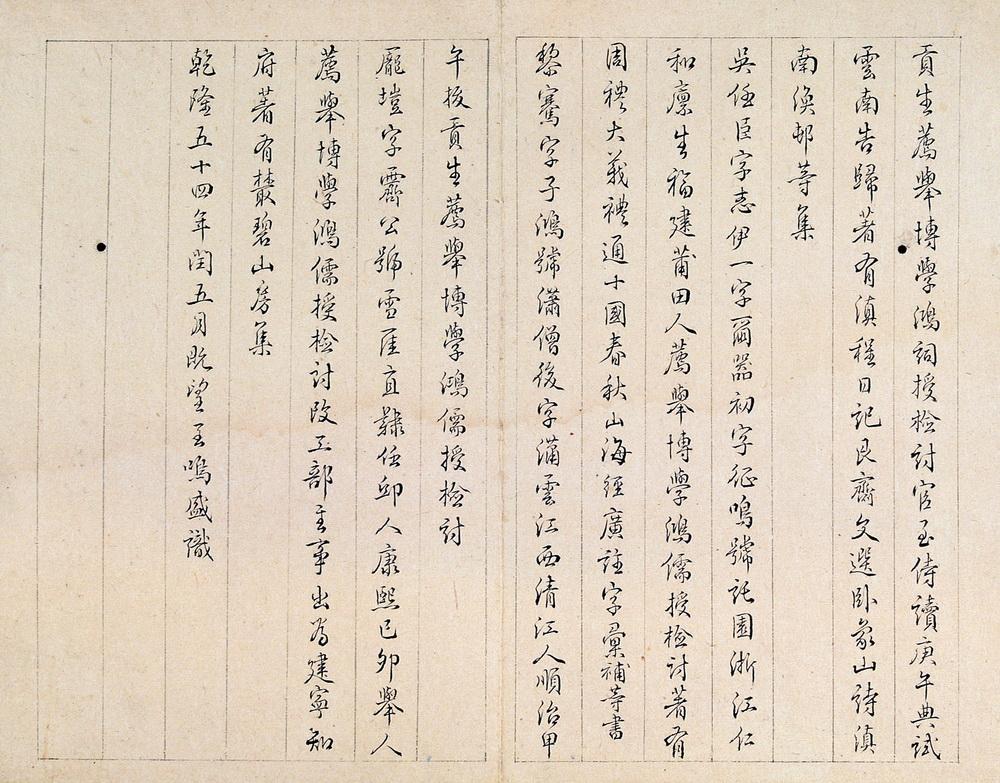 貢生薦舉博學鴻詞授檢討官至侍讀庚午典試
雲南告歸著有滇程日記艮齋文選臥象山詩滇
南倷邨等集
吳任臣字志伊一字爾器初字征鳴號託園浙江仁
和廩生福建莆田人薦舉博學鴻儒授檢討著有
周禮大義禮通十國春秋山海經廣註字彙補等書
黎騫字子鴻號瀟僧後字瀟雲江西清江人順治甲
午拔貢生薦舉博學鴻儒授檢討
龐塏字霽公號雪厓直隸任邱人康熙己卯舉人
薦舉博學鴻儒授檢討改工部主事出為建寧知
府著有叢碧山房集
乾隆五十四年閏五月既望王鳴盛識